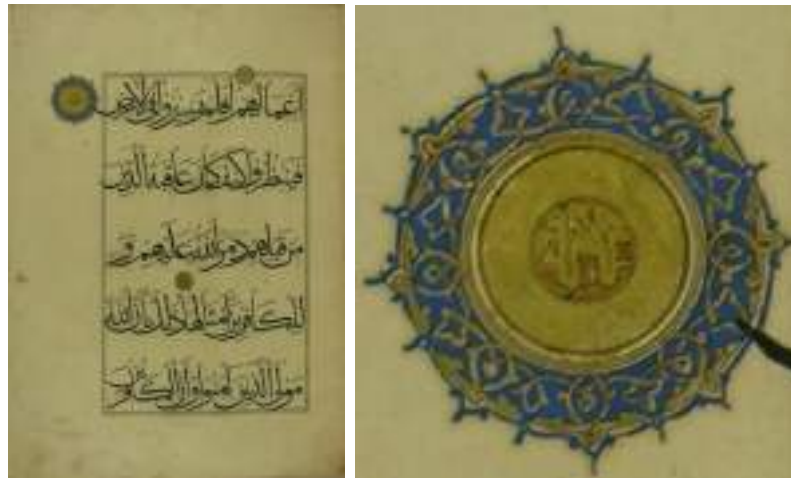 اعمالهم افلم يسيروا في الارض
فينظروا كيف كان عاقبة الذين
من قبلهم دمر الله عليهم و
للكافرين امثالها ذلك بان الله
مولى الذين امنوا وان الكافرين